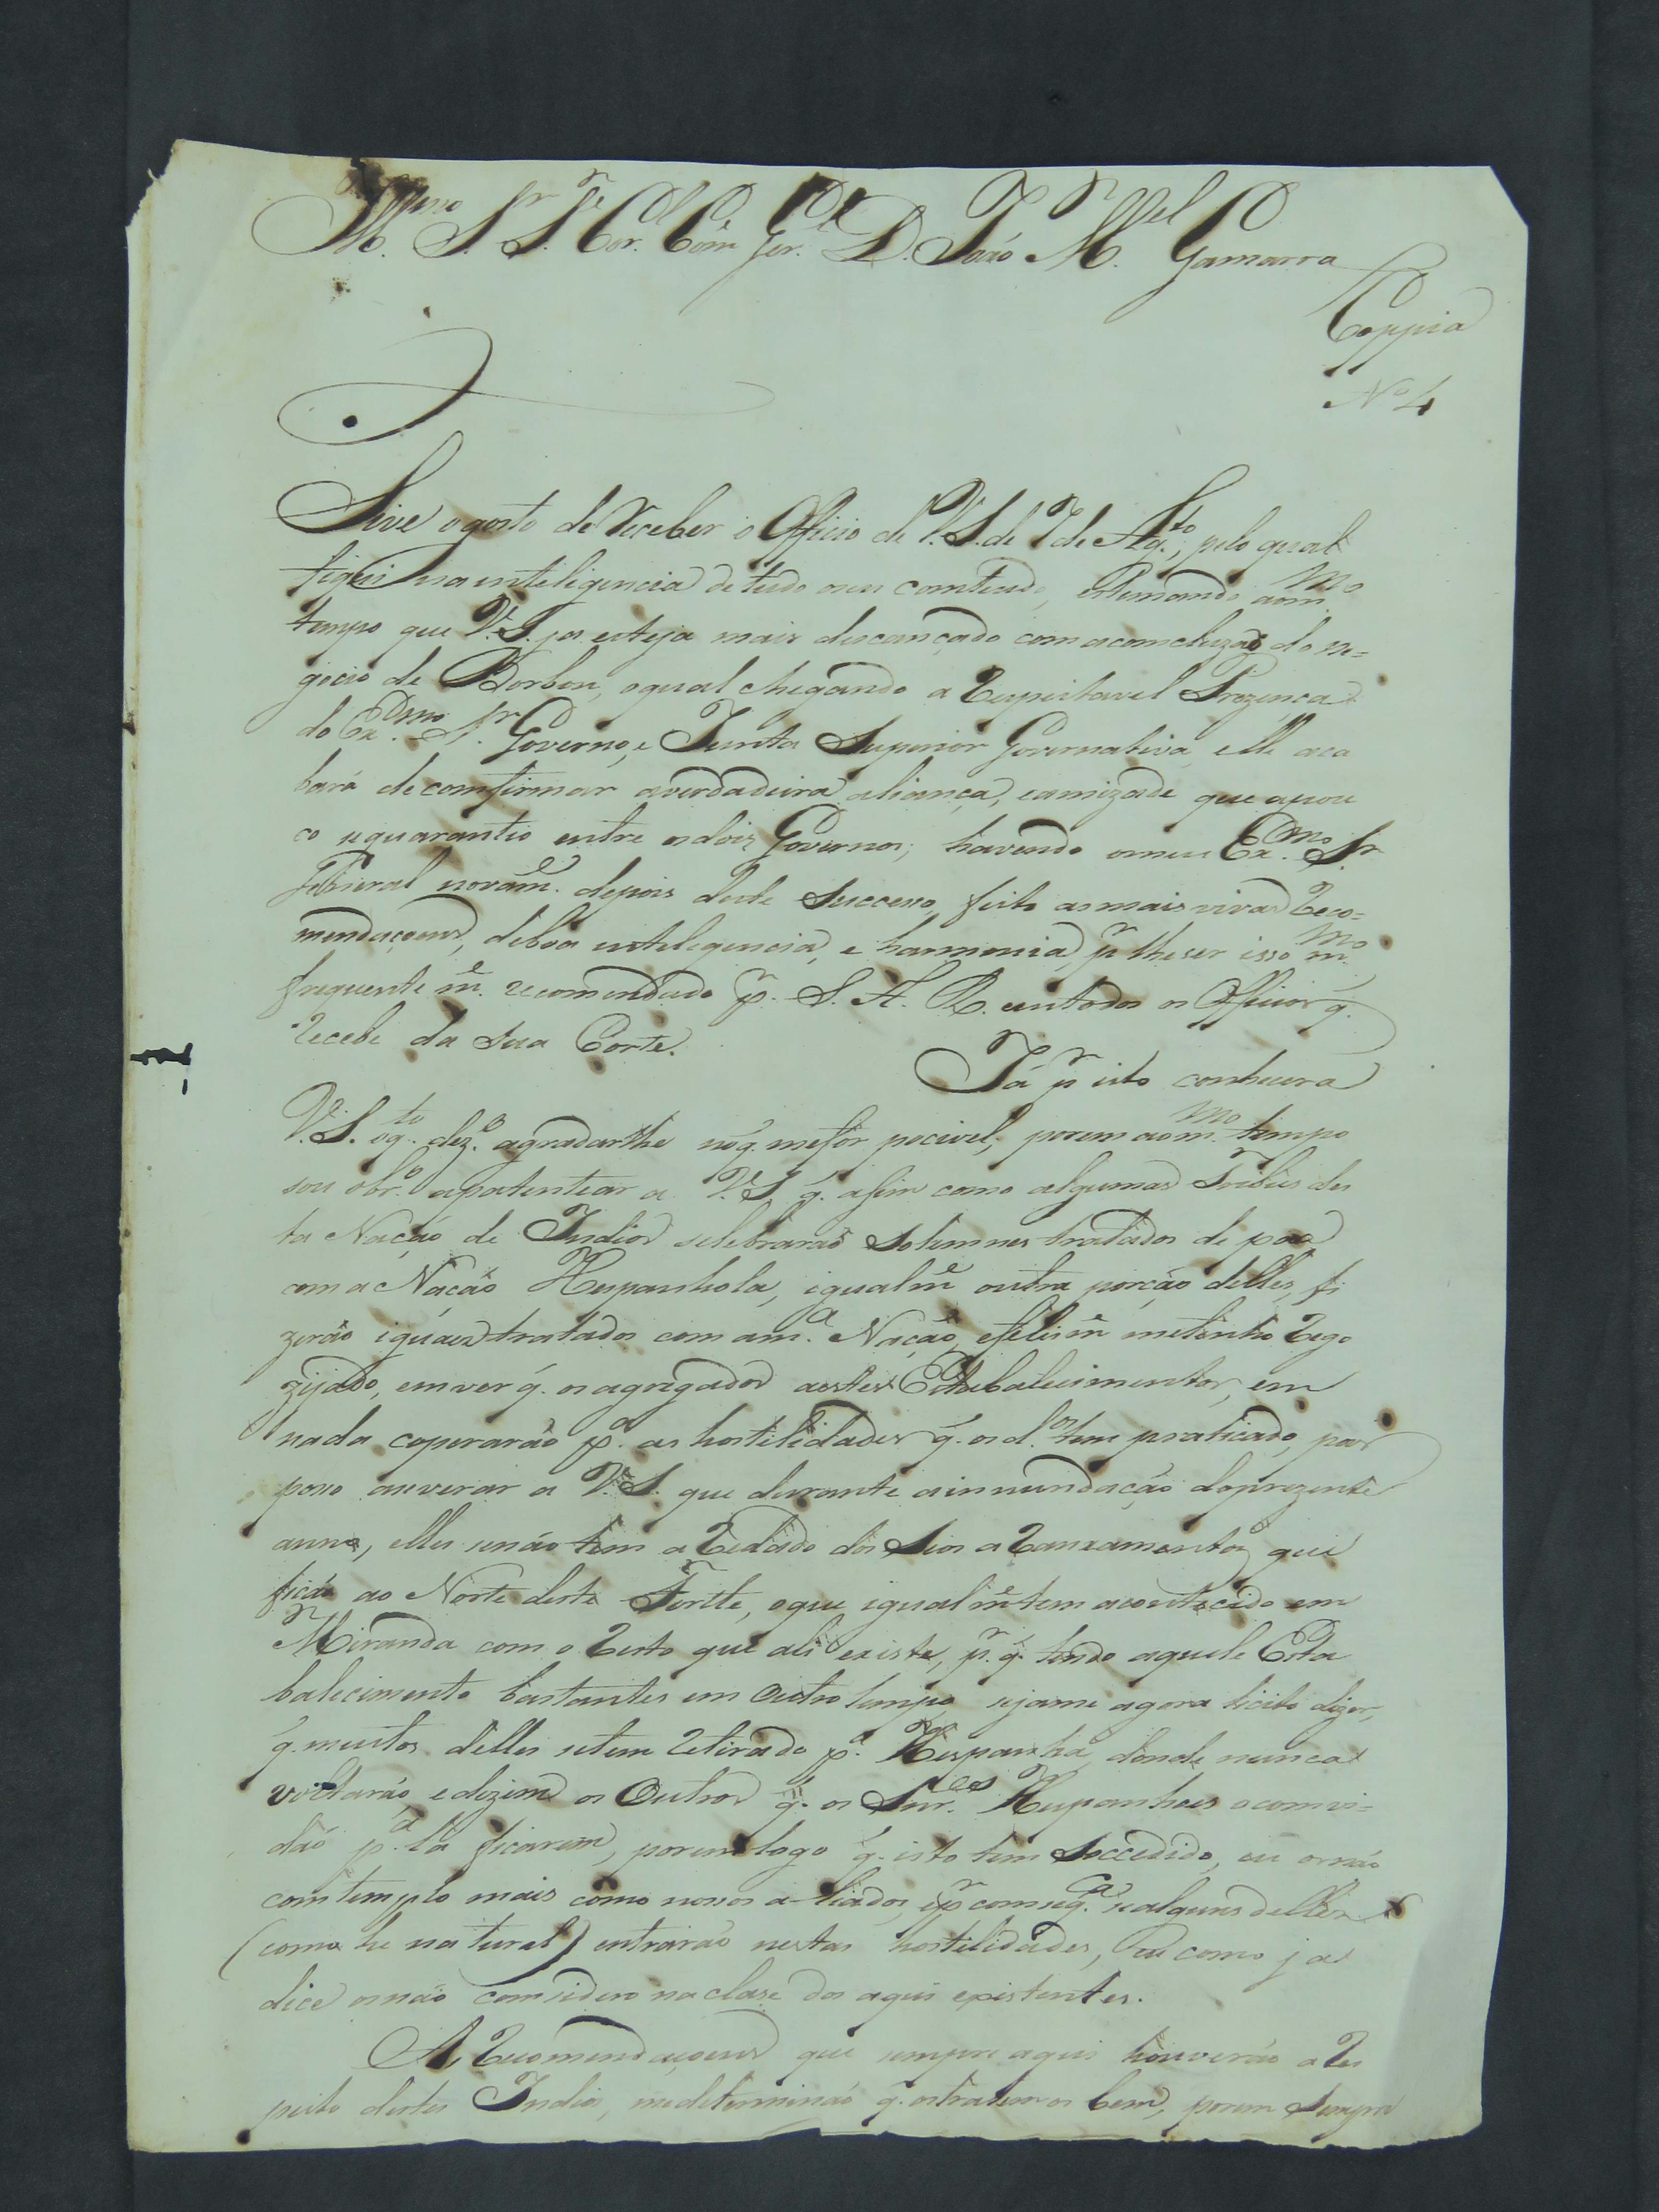 Ill.mo S.r T.e Cor.el Com.e Ger.al D. João M.el Gamarra
Coppia
Nº 4
Tive o gosto de receber o Officio de V.S. de 7 de Ag.to, pelo qual
fiquei na inteligencia de tudo o seu comteudo, estemando ao m.mo
tempo que V.S. ja esteja mais descançado com a comcluzaõ do ne=
gocio de Borbon, o qual chegando a respeitavel Prezenca
do Ex.mo S.r Governo, e Junta Superior Governativa, elle aca
bará de comfirmar a verdadeira aliança, e amizade que a pou
co se guarantio entre os dois Governos; havendo o meu Ex.mo S.r
General novam.e depois deste Successo, feito as mais vivas reco=
mendaçoens, de boa intelegencia, e harmonia, p.r lhe ser isso m.mo
frequente m.e recomendado p.r S. A. R. em todos os Officios q.
recebe da Sua Corte.
Já p.r isto conhecerá
V.S. o q.to dez.o agradarlhe no q. me for pocivel, porem ao m.mo tempo
sou obr.o apatentear a V.S. q. asim como algumas Tribus des
ta Nação de Indios selebraraõ Solemnes tratados de paz
com a Nação Hespanhola, igualm.e outra porção delles, fi
zerão iguaes tratados com a m.a Nação, e felism.e me tenho rego
zijado, em ver q. os agregados a estes Estabalecimentos, em
nada coperarão p.a as hostilidades q. os d.os tem praticado, pois
posso aseverar a V.S. que durante a innundação do prezente
anno, elles se não tem arredado dos Seos arranxamentos, que
ficão ao Norte deste Fortte, o que igualm.e tem acontecido em
Miranda com o resto que ali existe, p.r q. tendo aquele Esta
balecimento bastantes em Outro tempo, sejame agora licito dizer,
q. muitos delles se tem retirado p.a Hespanha, donde nunca
voltarão, e dizem os Outros q. os Snr.es Hespanhoes o comvi=
dão p.a lá ficarem, porem logo q. isto tem Soccedido, eu os não
comtemplo mais como nossos a-liados, e p.r comseq.a se alguns delles
(como he natural) entrarão nestas hostilidades, eu como ja
dice os não comsidero na clase dos aqui existentes.
As recomendaçoens que sempre aqui houverão a res
peito destes Indios, me determinão q. os tratemos bem, porem Sempre